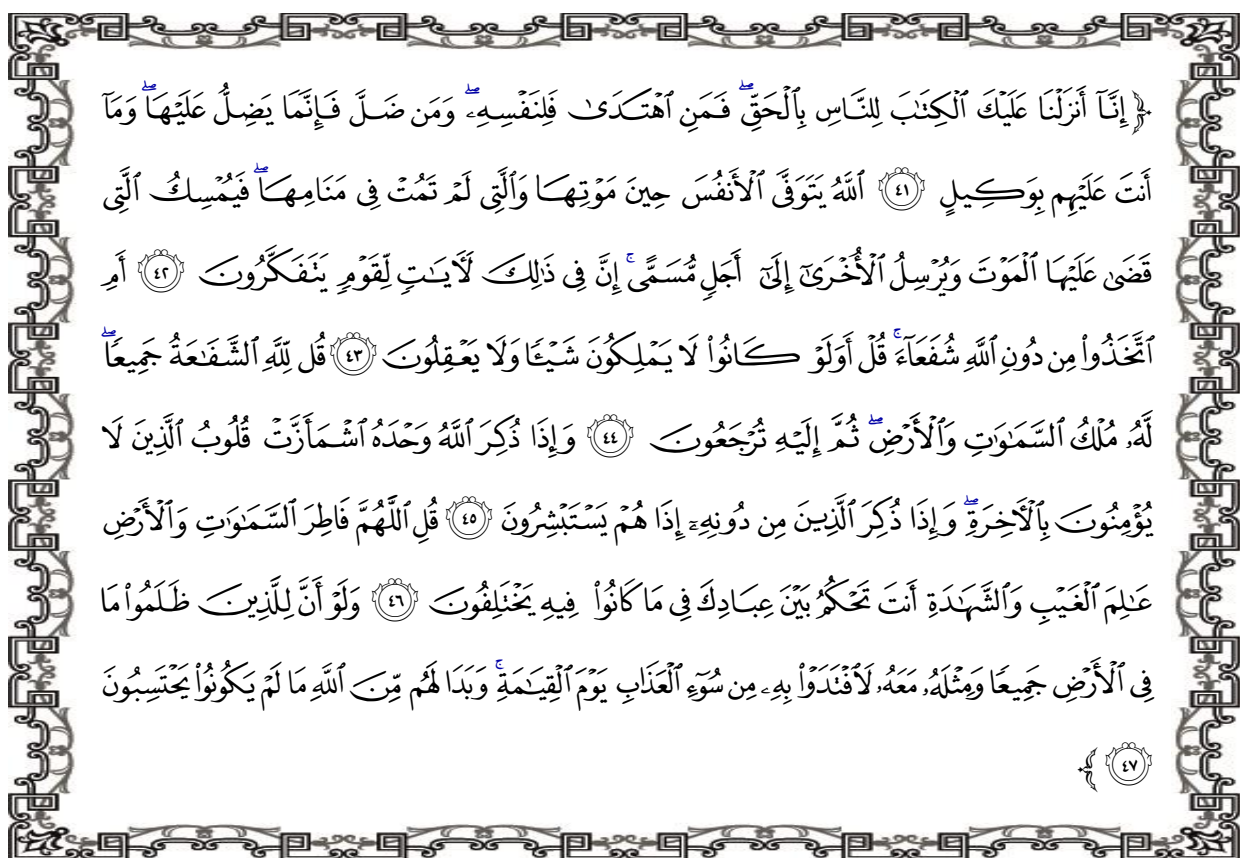 ﴿ إِنَّآ أَنزَلْنَا عَلَيْكَ ٱلْكِتَـٰبَ لِلنَّاسِ بِٱلْحَقِّ ۖ فَمَنِ ٱهْتَدَىٰ فَلِنَفْسِهِۦ ۖ وَمَن ضَلَّ فَإِنَّمَا يَضِلُّ عَلَيْهَا ۖ وَمَآ
أَنتَ عَلَيْهِم بِوَكِيلٍ ﴿٤١﴾ ٱللَّهُ يَتَوَفَّى ٱلْأَنفُسَ حِينَ مَوْتِهَا وَٱلَّتِى لَمْ تَمُتْ فِى مَنَامِهَا ۖ فَيُمْسِكُ ٱلَّتِى
قَضَىٰ عَلَيْهَا ٱلْمَوْتَ وَيُرْسِلُ ٱلْأُخْرَىٰٓ إِلَىٰٓ أَجَلٍ مُّسَمًّى ۚ إِنَّ فِى ذَٰلِكَ لَـَٔايَـٰتٍ لِّقَوْمٍ يَتَفَكَّرُونَ ﴿٤٢﴾ أَمِ
ٱتَّخَذُوا۟ مِن دُونِ ٱللَّهِ شُفَعَآءَ ۚ قُلْ أَوَلَوْ كَانُوا۟ لَا يَمْلِكُونَ شَيْـًٔا وَلَا يَعْقِلُونَ ﴿٤٣﴾ قُل لِّلَّهِ ٱلشَّفَـٰعَةُ جَمِيعًا ۖ
لَّهُۥ مُلْكُ ٱلسَّمَـٰوَٰتِ وَٱلْأَرْضِ ۖ ثُمَّ إِلَيْهِ تُرْجَعُونَ ﴿٤٤﴾ وَإِذَا ذُكِرَ ٱللَّهُ وَحْدَهُ ٱشْمَأَزَّتْ قُلُوبُ ٱلَّذِينَ لَا
يُؤْمِنُونَ بِٱلْـَٔاخِرَةِ ۖ وَإِذَا ذُكِرَ ٱلَّذِينَ مِن دُونِهِۦٓ إِذَا هُمْ يَسْتَبْشِرُونَ ﴿٤٥﴾ قُلِ ٱللَّهُمَّ فَاطِرَ ٱلسَّمَـٰوَٰتِ وَٱلْأَرْضِ
عَـٰلِمَ ٱلْغَيْبِ وَٱلشَّهَـٰدَةِ أَنتَ تَحْكُمُ بَيْنَ عِبَادِكَ فِى مَا كَانُوا۟ فِيهِ يَخْتَلِفُونَ ﴿٤٦﴾ وَلَوْ أَنَّ لِلَّذِينَ ظَلَمُوا۟ مَا
فِى ٱلْأَرْضِ جَمِيعًا وَمِثْلَهُۥ مَعَهُۥ لَٱفْتَدَوْا۟ بِهِۦ مِن سُوٓءِ ٱلْعَذَابِ يَوْمَ ٱلْقِيَـٰمَةِ ۚ وَبَدَا لَهُم مِّنَ ٱللَّهِ مَا لَمْ يَكُونُوا۟ يَحْتَسِبُونَ
﴿٤٧﴾ ﴾